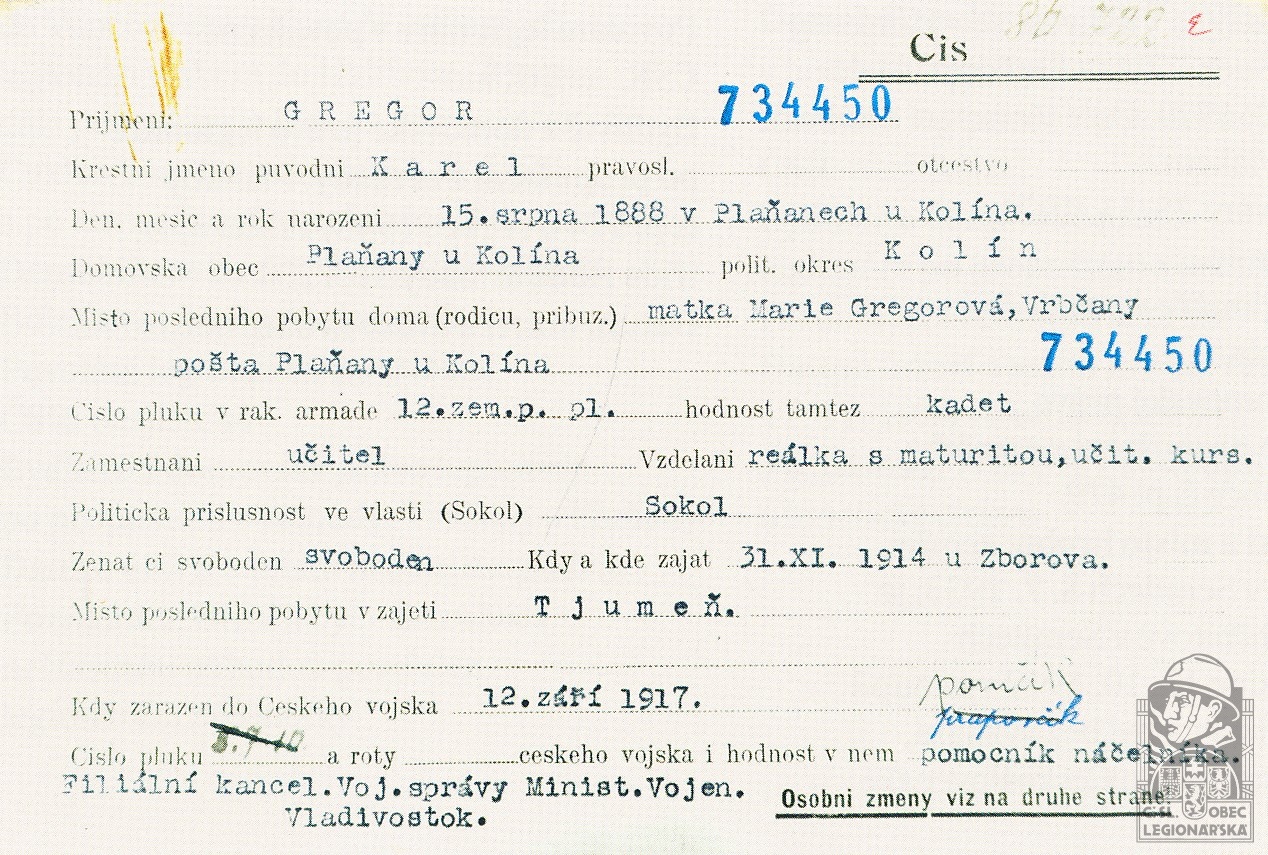 Cis
Prijmeni: GREGOR 734450
Krestni jmeno puvodni Karel pravosl. otcestvo
Den. mesic a rok narozeni 15.srpna 1888 v Plaňanech u Kolína.
Domovska obec Plaňany u Kolína polit. okres Kolín
Misto posledniho pobytu doma (rodicu, pribuz.) matka Marie Gregorová,Vrbčany
pošta Plaňany u Kolína 734450
Cislo pluku v rak. armade 12.zem.p. pl. hodnost tamtez kadet
Zamestnani učitel Vzdelani reálka s maturitou,učit. kurs.
Politicka prislusnost ve vlasti (Sokol) Sokol
Zenat ci svoboden svoboden Kdy a kde zajat 31.XI. 1914 u Zborova.
Misto posledniho pobytu v zajeti Tjumeň.
Kdy zarazen do Ceskeho vojska 12.září 1917.
poručík
praporčík
Cislo pluku a roty ceskeho vojska i hodnost v nem pomocník náčelníka.
Filiální kancel.Voj.správy Minist.Vojen.
Vladivostok.
Osobni zmeny viz na druhe strane.
ČSL. OBEC
LEGIONÁŘSKÁ